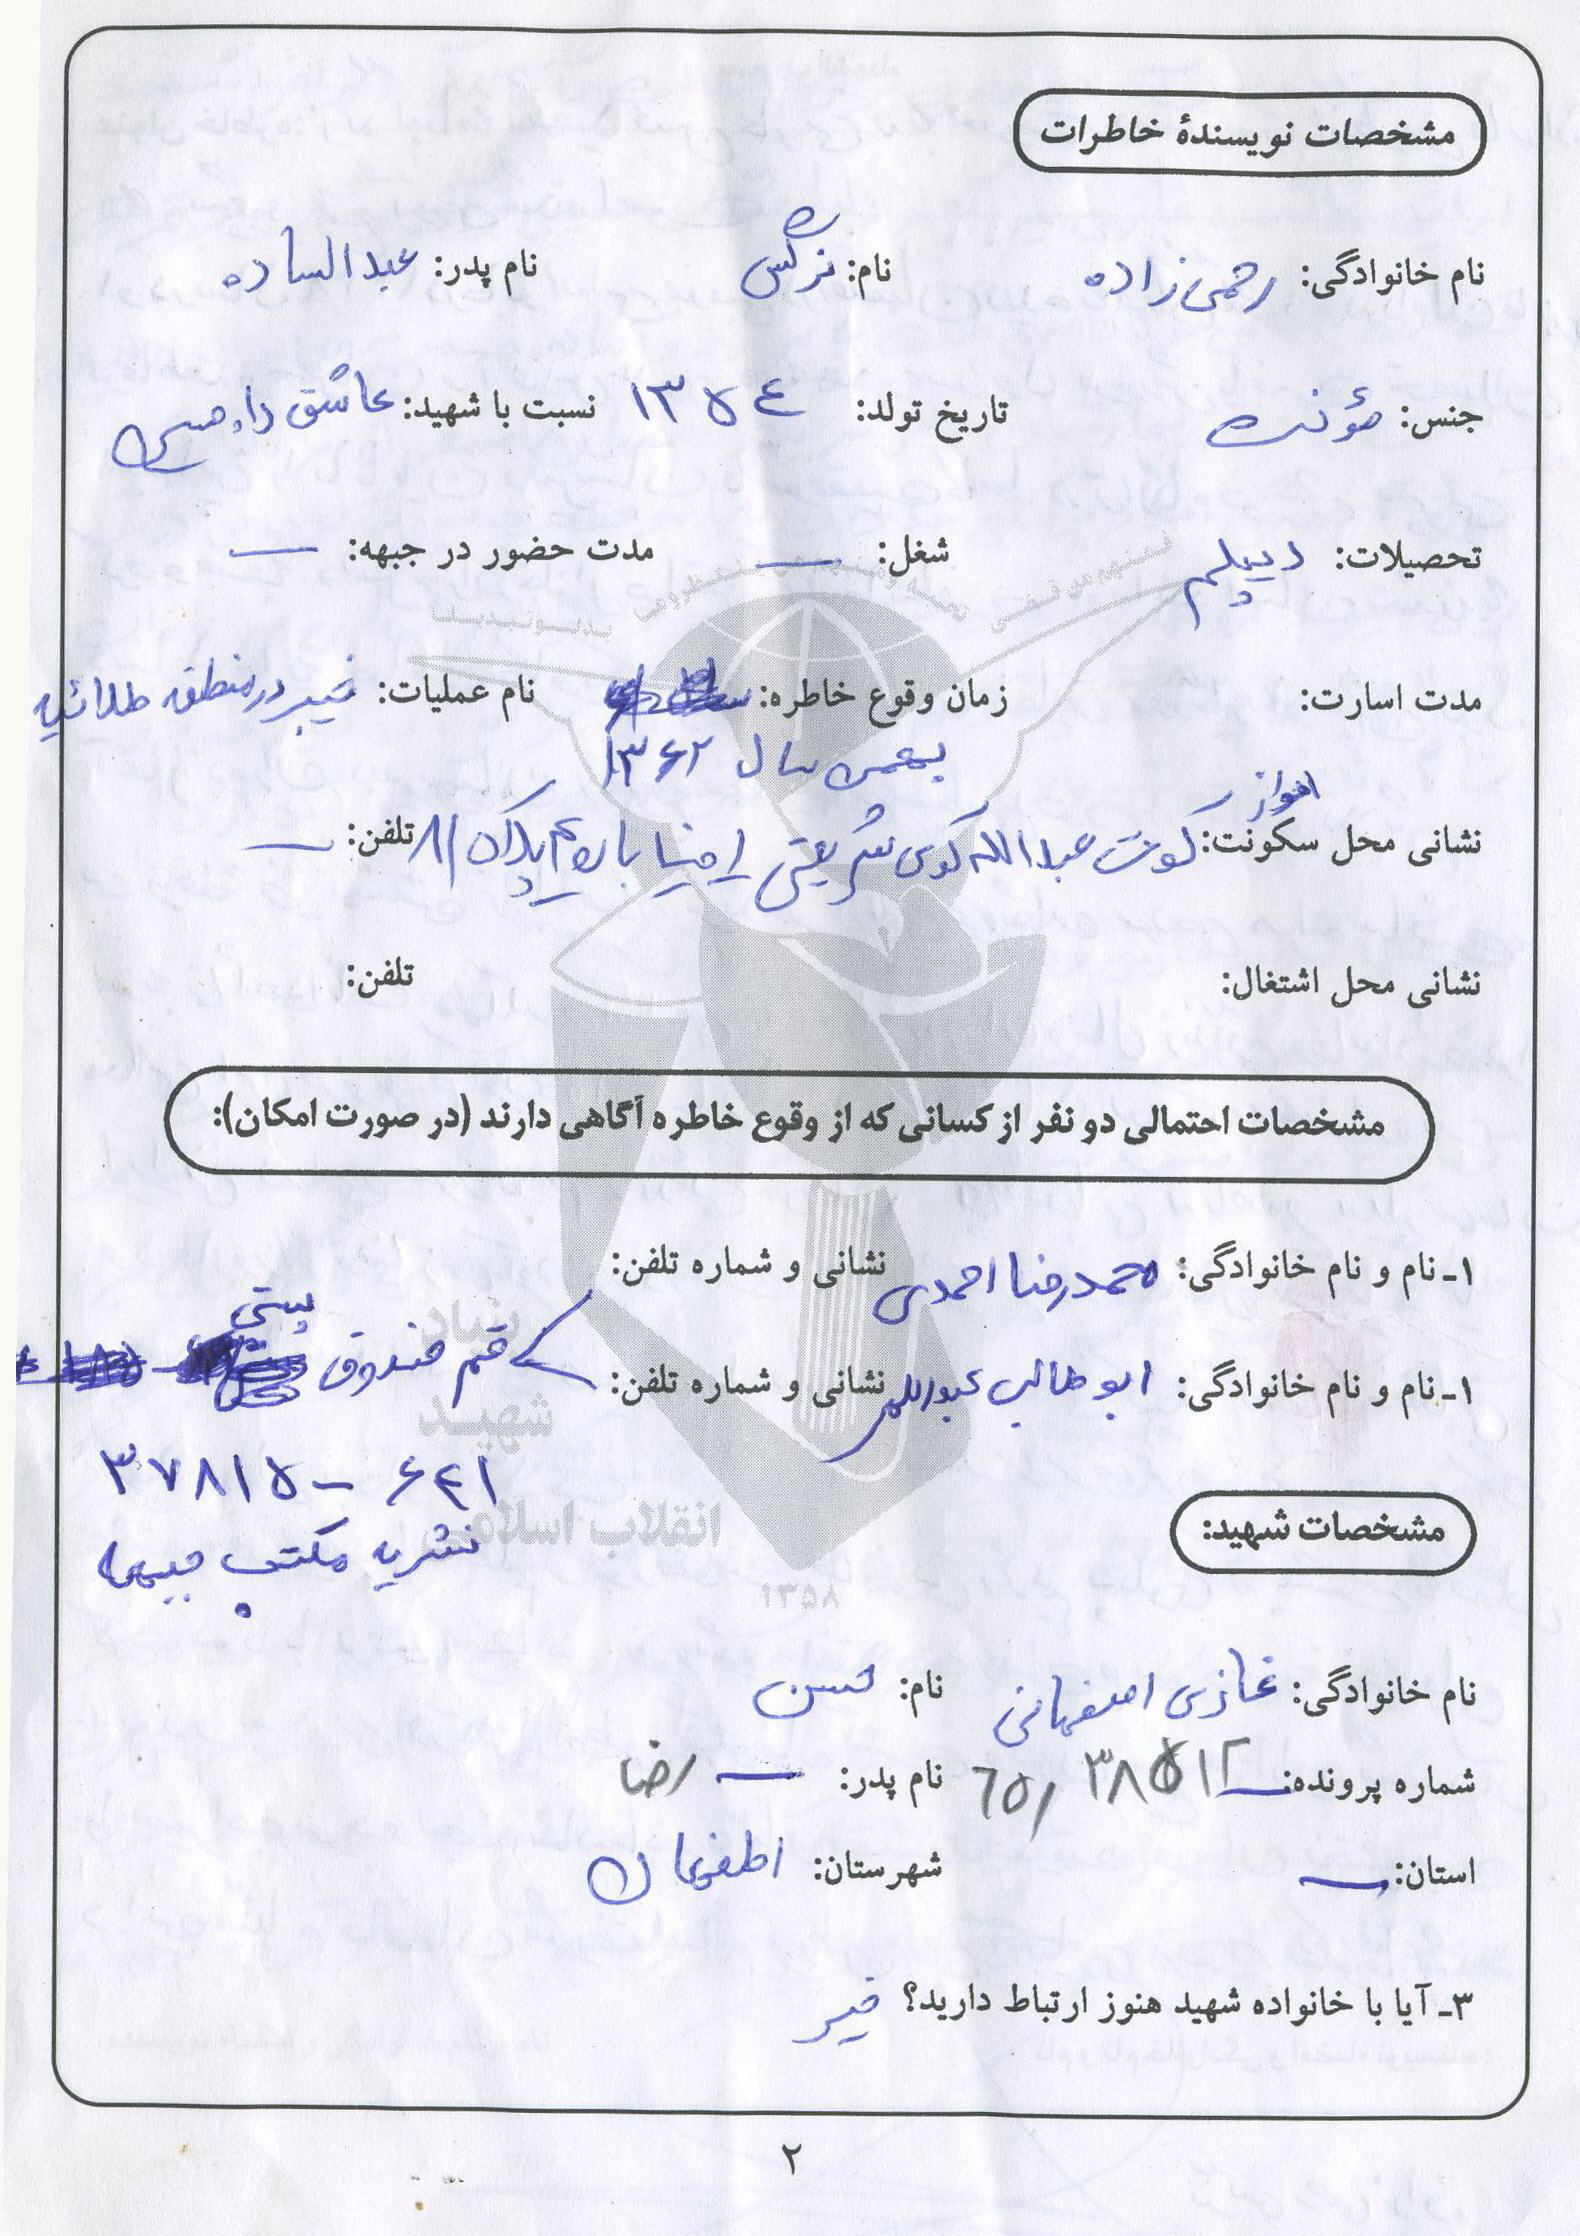 مشخصات نویسندهٔ خاطرات
نام خانوادگی: رحمی‌زاده نام: نرگس نام پدر: عبدالساده
جنس: مؤنث تاریخ تولد: ۱۳۵۴ نسبت با شهید: عاشق راه
تحصیلات: دیپلم شغل: — مدت حضور در جبهه: —
مدت اسارت: زمان وقوع خاطره: نام عملیات: خیبر در منطقه طلائیه
بهمن سال ۱۳۶۲
اهواز
نشانی محل سکونت: کوت عبدالله کوی شریعتی خیابان پلاک ۸۱ تلفن: —
نشانی محل اشتغال: تلفن:
مشخصات احتمالی دو نفر از کسانی که از وقوع خاطره آگاهی دارند (در صورت امکان):
۱ـ نام و نام خانوادگی: محمدرضا احمدی نشانی و شماره تلفن:
۱ـ نام و نام خانوادگی: ابوطالب نشانی و شماره تلفن: قم صندوق پستی
۳۷۸۱۵ – ۶۴۱
نشریه مکتب جبهه
بنیاد
شهید
انقلاب اسلامی
۱۳۵۸
مشخصات شهید:
نام خانوادگی: غازی اصفهانی نام: حسن
شماره پرونده: — ۳۸۵۱۲ / ۶۵ نام پدر: — رضا
استان: — شهرستان: اصفهان
۳ـ آیا با خانواده شهید هنوز ارتباط دارید؟ خیر
۲